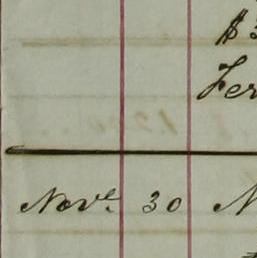 $3
Fer
Nov.r 30 N